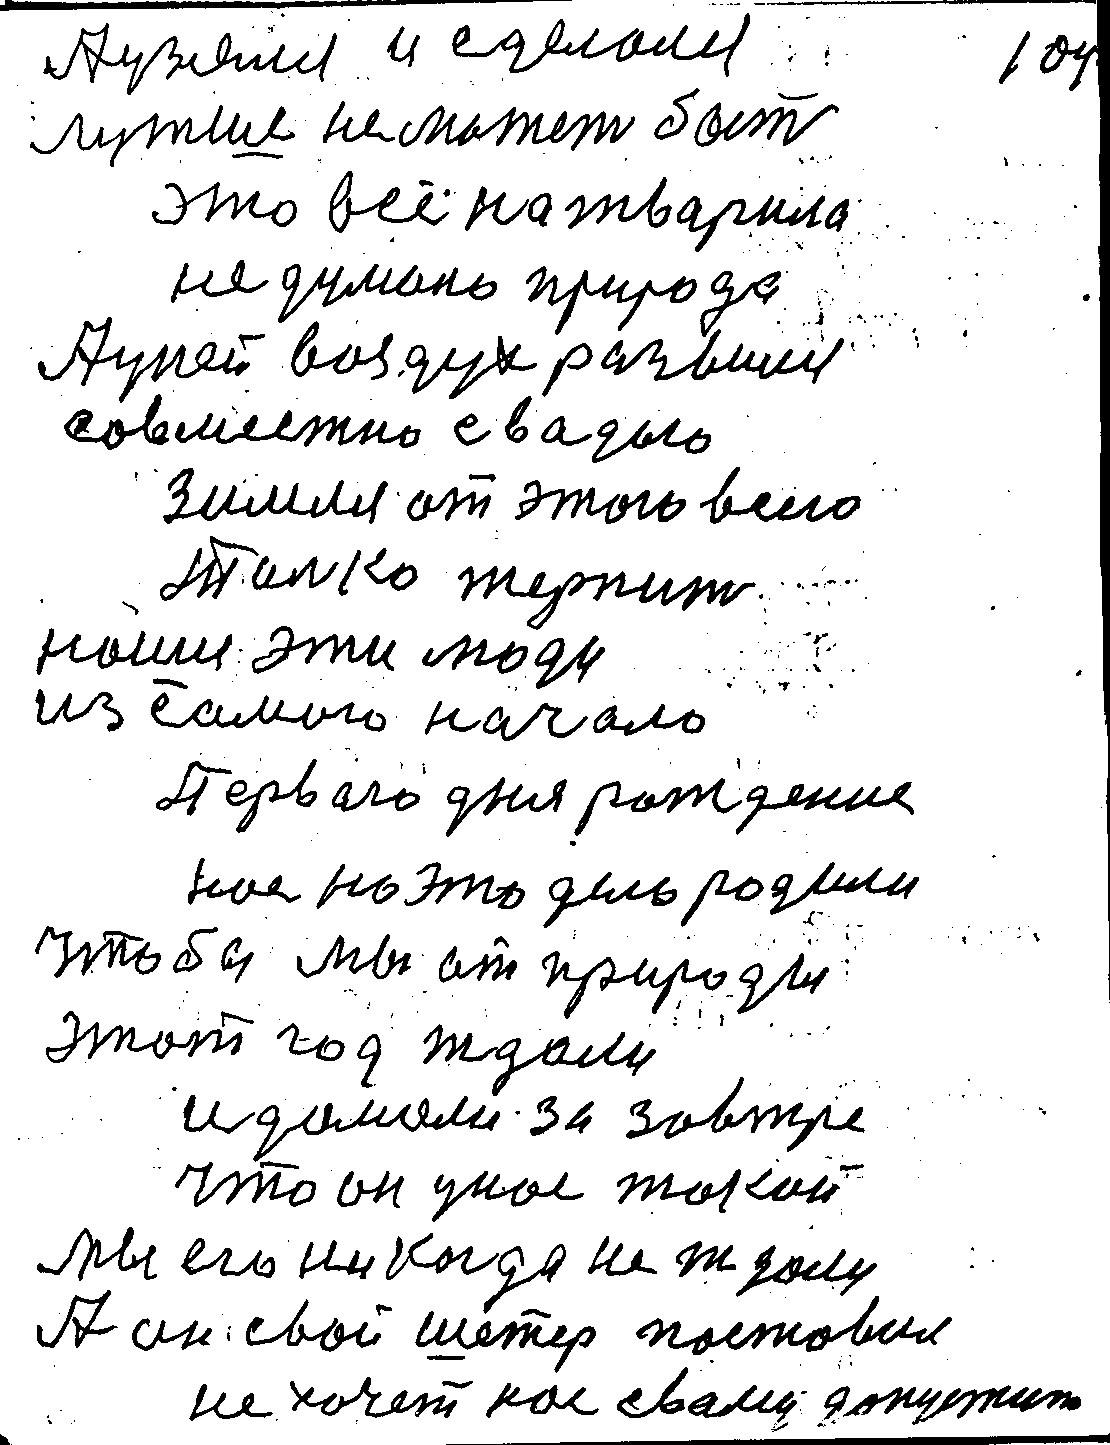 Аузяли и сделали 104
лутше не может быт
это всё натварила
не думано природа
Аупей воздух развили
совместно с вадою
Зимля от этого всего
Толко терпит
наши эти люди
из самого начало
Перваго дня рождение
нас на это дело родили
Чтобы мы от природы
этот год ждали
и думали за завтре
что он унас такой
мы его никогда не ждали
А он свой шатер поставил
не хочет нас сваму допустить